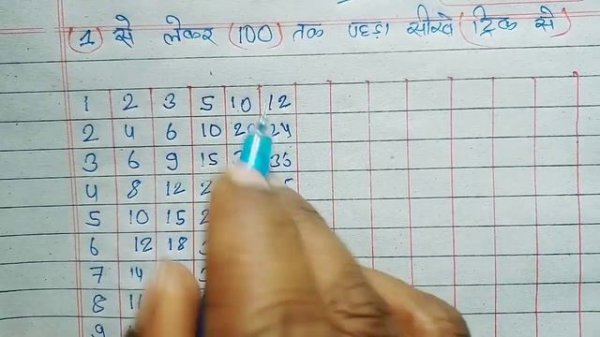 (1) से लेकर (100) तक पहाड़ा सीखें (ट्रिक से)
1 2 3 5 10 12
2 4 6 10 20 24
3 6 9 15 36
4 8 12
5 10 15
6 12 18
7 14
8
9